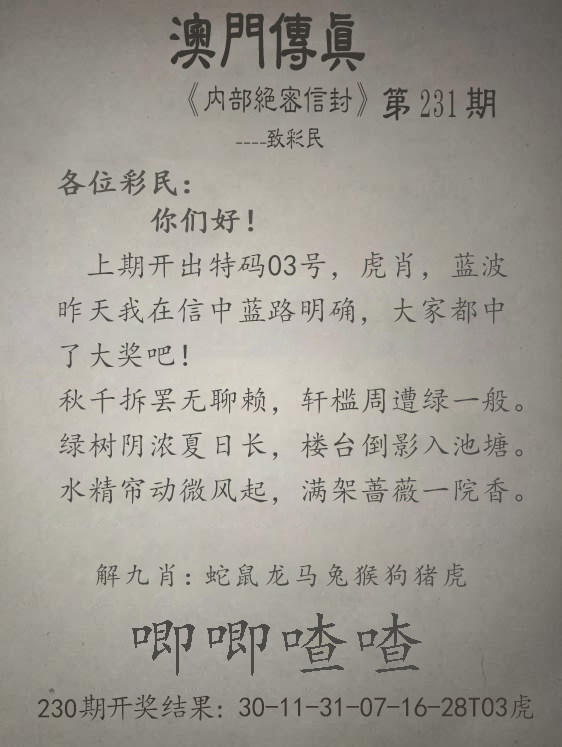 澳門傳真
《内部絕密信封》第231期
----致彩民
各位彩民：
你们好！
上期开出特码03号，虎肖，蓝波
昨天我在信中蓝路明确，大家都中
了大奖吧！
秋千拆罢无聊赖，轩槛周遭绿一般。
绿树阴浓夏日长，楼台倒影入池塘。
水精帘动微风起，满架蔷薇一院香。
解九肖：蛇鼠龙马兔猴狗猪虎
唧唧喳喳
230期开奖结果：30-11-31-07-16-28T03虎